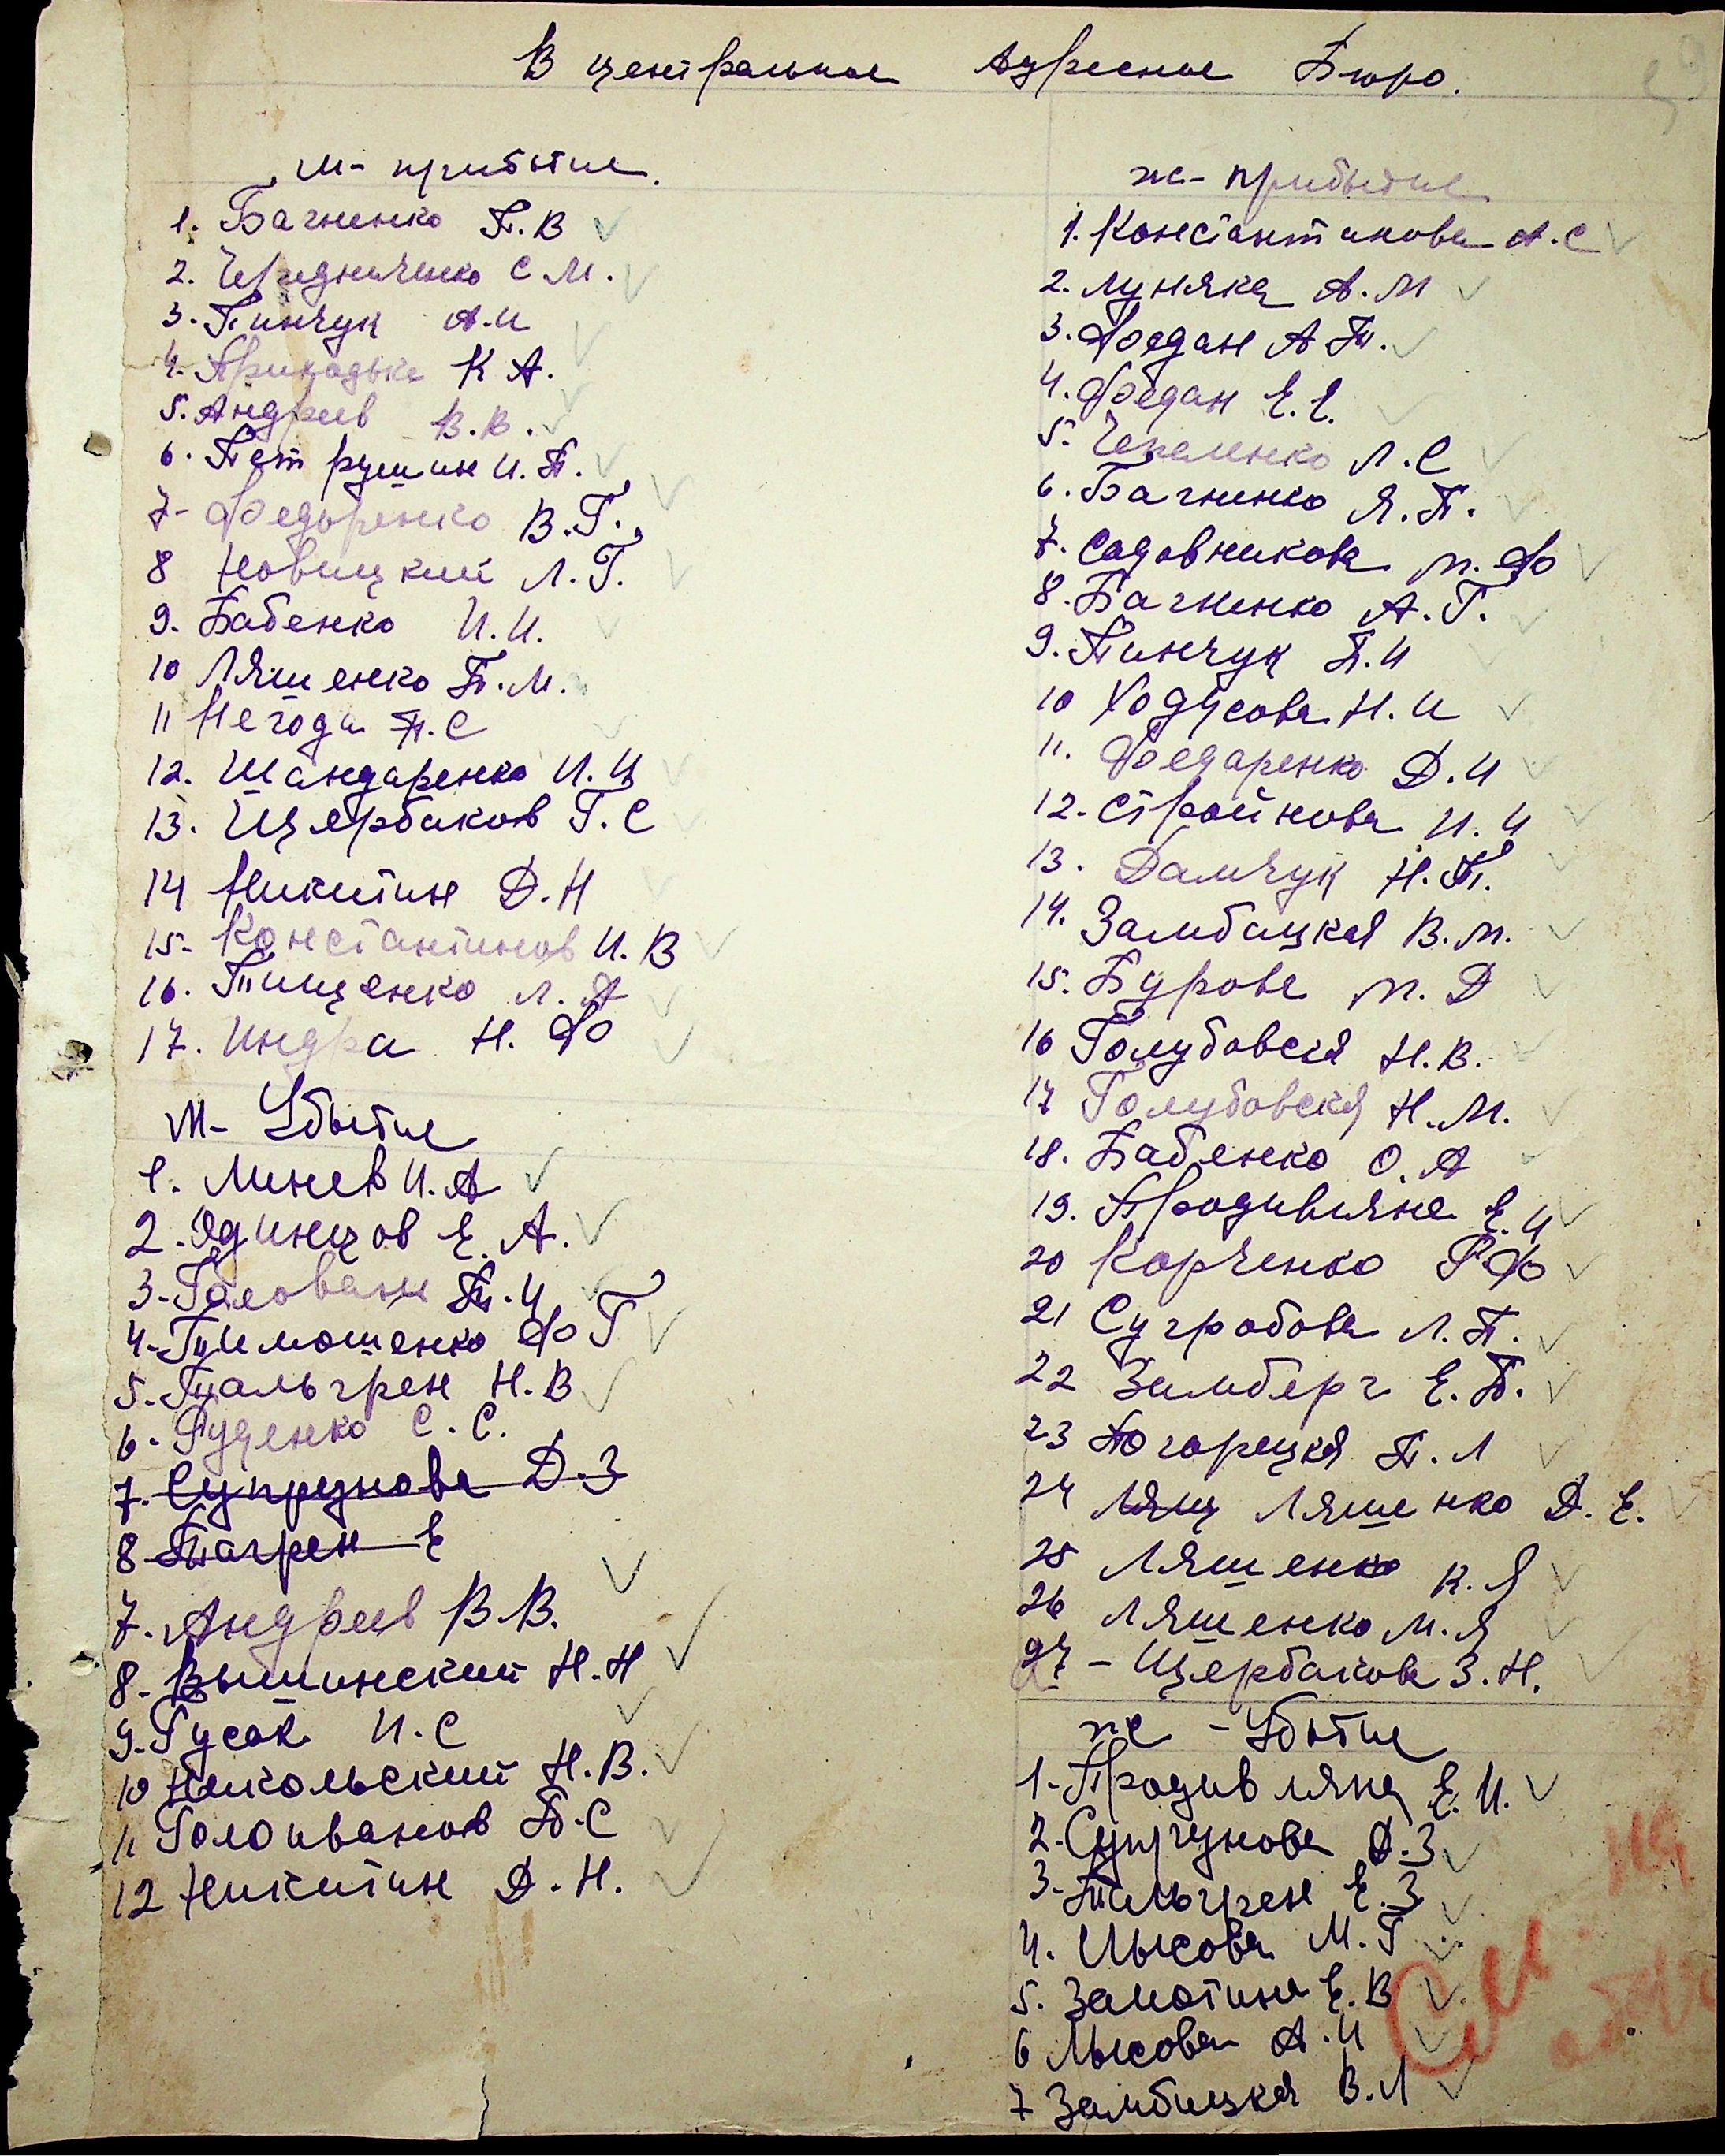 В центральное Адресное Бюро.
м- прибытие.
1. Бачненко П.В
2. Чередниченко С М.
3. Пинчук А.И
4. Приходько К А.
5. Андреев В.В.
6. Петрушин И.П.
7- Федоренко В.Г.
8 Новицкий Л.Г.
9. Бабенко И.И.
10 Ляшенко П.М.
11 Негода П.С
12. Шандаренко И.И
13. Щербаков Г.С
14 Никитин Д.Н
15- Константинов И.В
16. Тищенко Л.А
17. Индра Н. Ф
М- Убытие
1. Минев И.А
2. Одинцов Е.А.
3- Головань П.И
4- Тимошенко Ф Г
5- Тальгрен Н.В
6- Руденко С.С.
7. Супрунова Д.З
8 Тагрен Е
7. Андреев В.В.
8. Вышинский Н.Н
9- Гусак И.С
10 Никольский Н.В.
11 Голоиванов П.С
12 Никитин Д.Н.
ж- прибытие
1. Константинова А.С
2. Луняка А.М
3. Федан А П.
4. Федан Е.Е.
5. Чепаленко Л.С
6. Бачненко Я.П.
7. Садовникова М.Ф
8. Бачненко А.Г.
9. Пинчук П.И
10 Ходусова Н.И
11. Федаренко Д.И
12. Стройнова И.И
13. Дамчук Н.П.
14. Замбацкая В.М.
15. Бурова М.Д
16 Голубовская Н.В.
17 Голубовская Н.М.
18. Бабенко О.А
19. Продивляна Е.И
20 Корченко Р Ф
21 Сугробова Л.П.
22 Зимберг Е.П.
23 Погорецкая П.Л
24 Лящ Ляшенко Д.Е.
25 Ляшенко К.Я
26 Ляшенко М.Я
27 - Щербакова З.Н.
ж - Убытие
1- Продивляна Е.И.
2. Супрунова Д.З
3- Тальгрен Е.З
4. Лысова М.Г
5. Замотина Е.В
6 Лысова А.И
7 Замбицкая В.Л